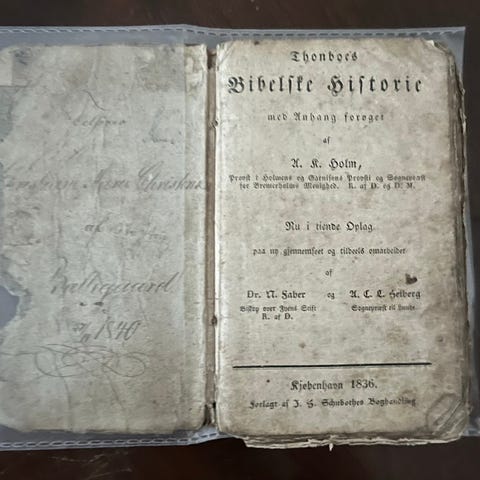 Tilhører
af
1840
Thonboes
Bibelske Historie
med Anhang forøget
af
A. K. Holm,
Provst i Holmens og Garnisons Provsti og Sognepræst
for Bremerholms Menighed. R. af D. og D. M.
Nu i tiende Oplag
paa ny gjennemseet og tildeels omarbeidet
af
Dr. N. Faber og A. C. L. Heiberg
Biskop over Fyens Stift Sognepræst til
R. af D.
Kjøbenhavn 1836.
Forlagt af J. H. Schubothes Boghandling